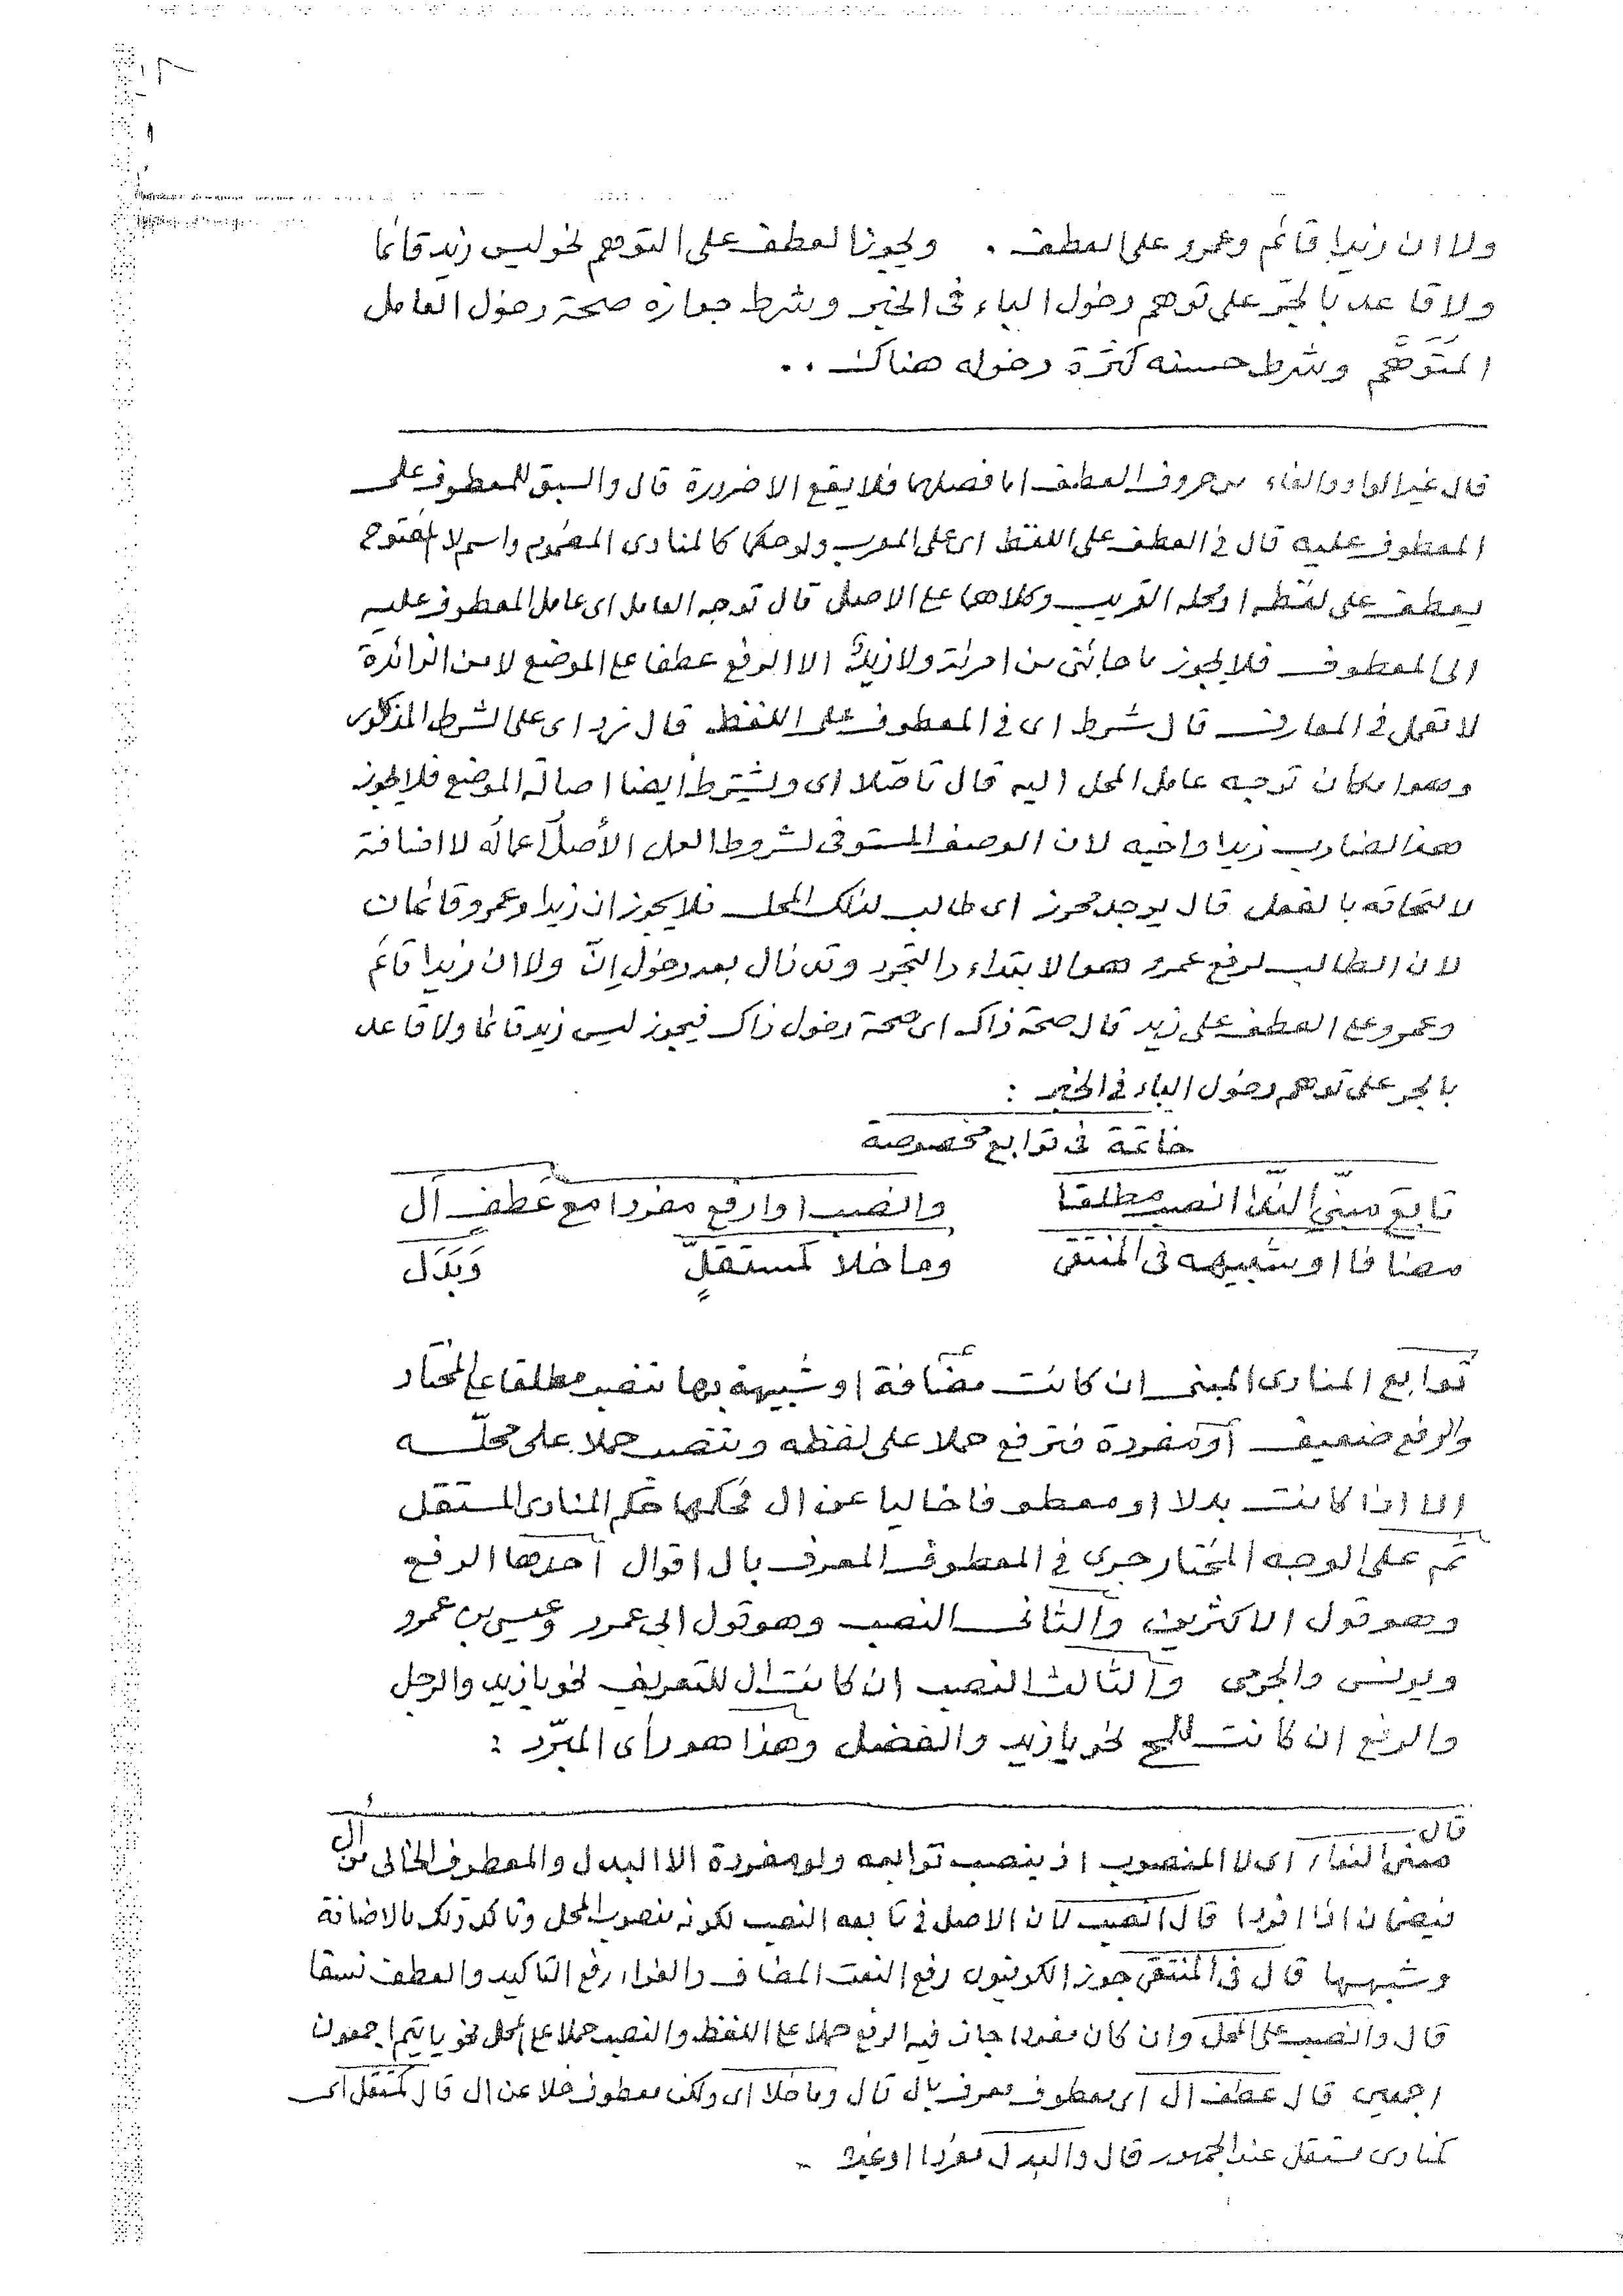 ولا ان زيدا قائم وعمرو على العطف . ويجوز العطف على التوهم نحو ليس زيد قائما
ولا قاعد بالجر على توهم دخول الباء فى الخبر وشرط جوازه صحة دخول العامل
المتوَهَّم وشرط حسنه كثرة دخوله هناك . .
قال غير الواو والفاء من حروف العطف اما فصلهما فلا يقع الا ضرورة قال والسبق للمعطوف على
المعطوف عليه قال فى العطف على اللفظ اى على المعرب ولو حكما كالمنادى المضموم واسم لا المفتوح
يعطف على لفظه او محله القريب وكلاهما ع الاصل قال توجه العامل اى عامل المعطوف عليه
الى المعطوف فلا يجوز ما جائنى من امرئة ولا زيدٌ الا الرفع عطفا ع الموضع لا من الزائدة
لا تعمل فى المعارف قال شرط اى فى المعطوف على اللفظ قال زد اى على الشرط المذكور
وهو امكان توجه عامل المحل اليه قال تاصّلا اى ويشترط ايضا اصالة الموضع فلا يجوز
هذا الضارب زيدا واخيه لان الوصف المستوفى لشروط العمل الأصلُ اعماله لا اضافته
لالتحاقه بالفعل قال يوجد محرز اى طالب لذلك المحل فلا يجوز ان زيدا وعمرو قائمان
لان الطالب لرفع عمرو هو الابتداء والتجرد وقد زال بعد دخول إنّ ولا ان زيدا قائم
وعمرو ع العطف على زيد قال صحة ذاك اى صحة دخول ذاك فيجوز ليس زيد قائما ولا قاعد
بالجر على توهم دخول الباء فى الخبر :
خاتمة فى توابع مخصوصة
تابعَ مبنىّ الندا انصب مطلقا وانصب او ارفع مفردا مع عطفِ ال
مضافا او شبيهه فى المنتقى وما خلا كمستقلٍّ وَبَدَل
توابع المنادى المبنى ان كانت مضافة او شبيهة بها تنصب مطلقا ع المختار
والرفع ضعيف أو مفردة فترفع حملا على لفظه وتنصب حملا على محلّه
الا اذا كانت بدلا او معطوفا خاليا عن ال فحكمها حكم المنادى المستقل
ثم على الوجه المختار جرى فى المعطوف المعرف بال اقوال أحدها الرفع
وهو قول الاكثرين والثانى النصب وهو قول ابى عمرو وعيسى بن عمرو
ويونس والجرمى والثالث النصب ان كانت ال للتعريف نحو يا زيد والرجل
والرفع ان كانت للمح نحو يا زيد والفضل وهذا هو رأى المبرّد :
قال
مبنى النداء اى لا المنصوب اذ ينصب توابعه ولو مفردة الا البدل والمعطوف الخالى من ال
فيضمان اذا افردا قال انصب لان الاصل فى تابعه النصب لكونه منصوب المحل وتاكد ذلك بالاضافة
وشبهها قال فى المنتقى جوز الكوفيون رفع النعت المضاف والفراء رفع التاكيد والعطف نسقا
قال وانصب على المحل وان كان مفردا جاز فيه الرفع حملا ع اللفظ والنصب حملا ع المحل نحو يا تيم اجمعون
اجمعين قال عطف ال اى معطوف معرف بال قال وما خلا اى ولكن معطوف خلا عن ال قال كمستقل اى
كمنادى مستقل عند الجمهور قال والبدل مفردا او غيره